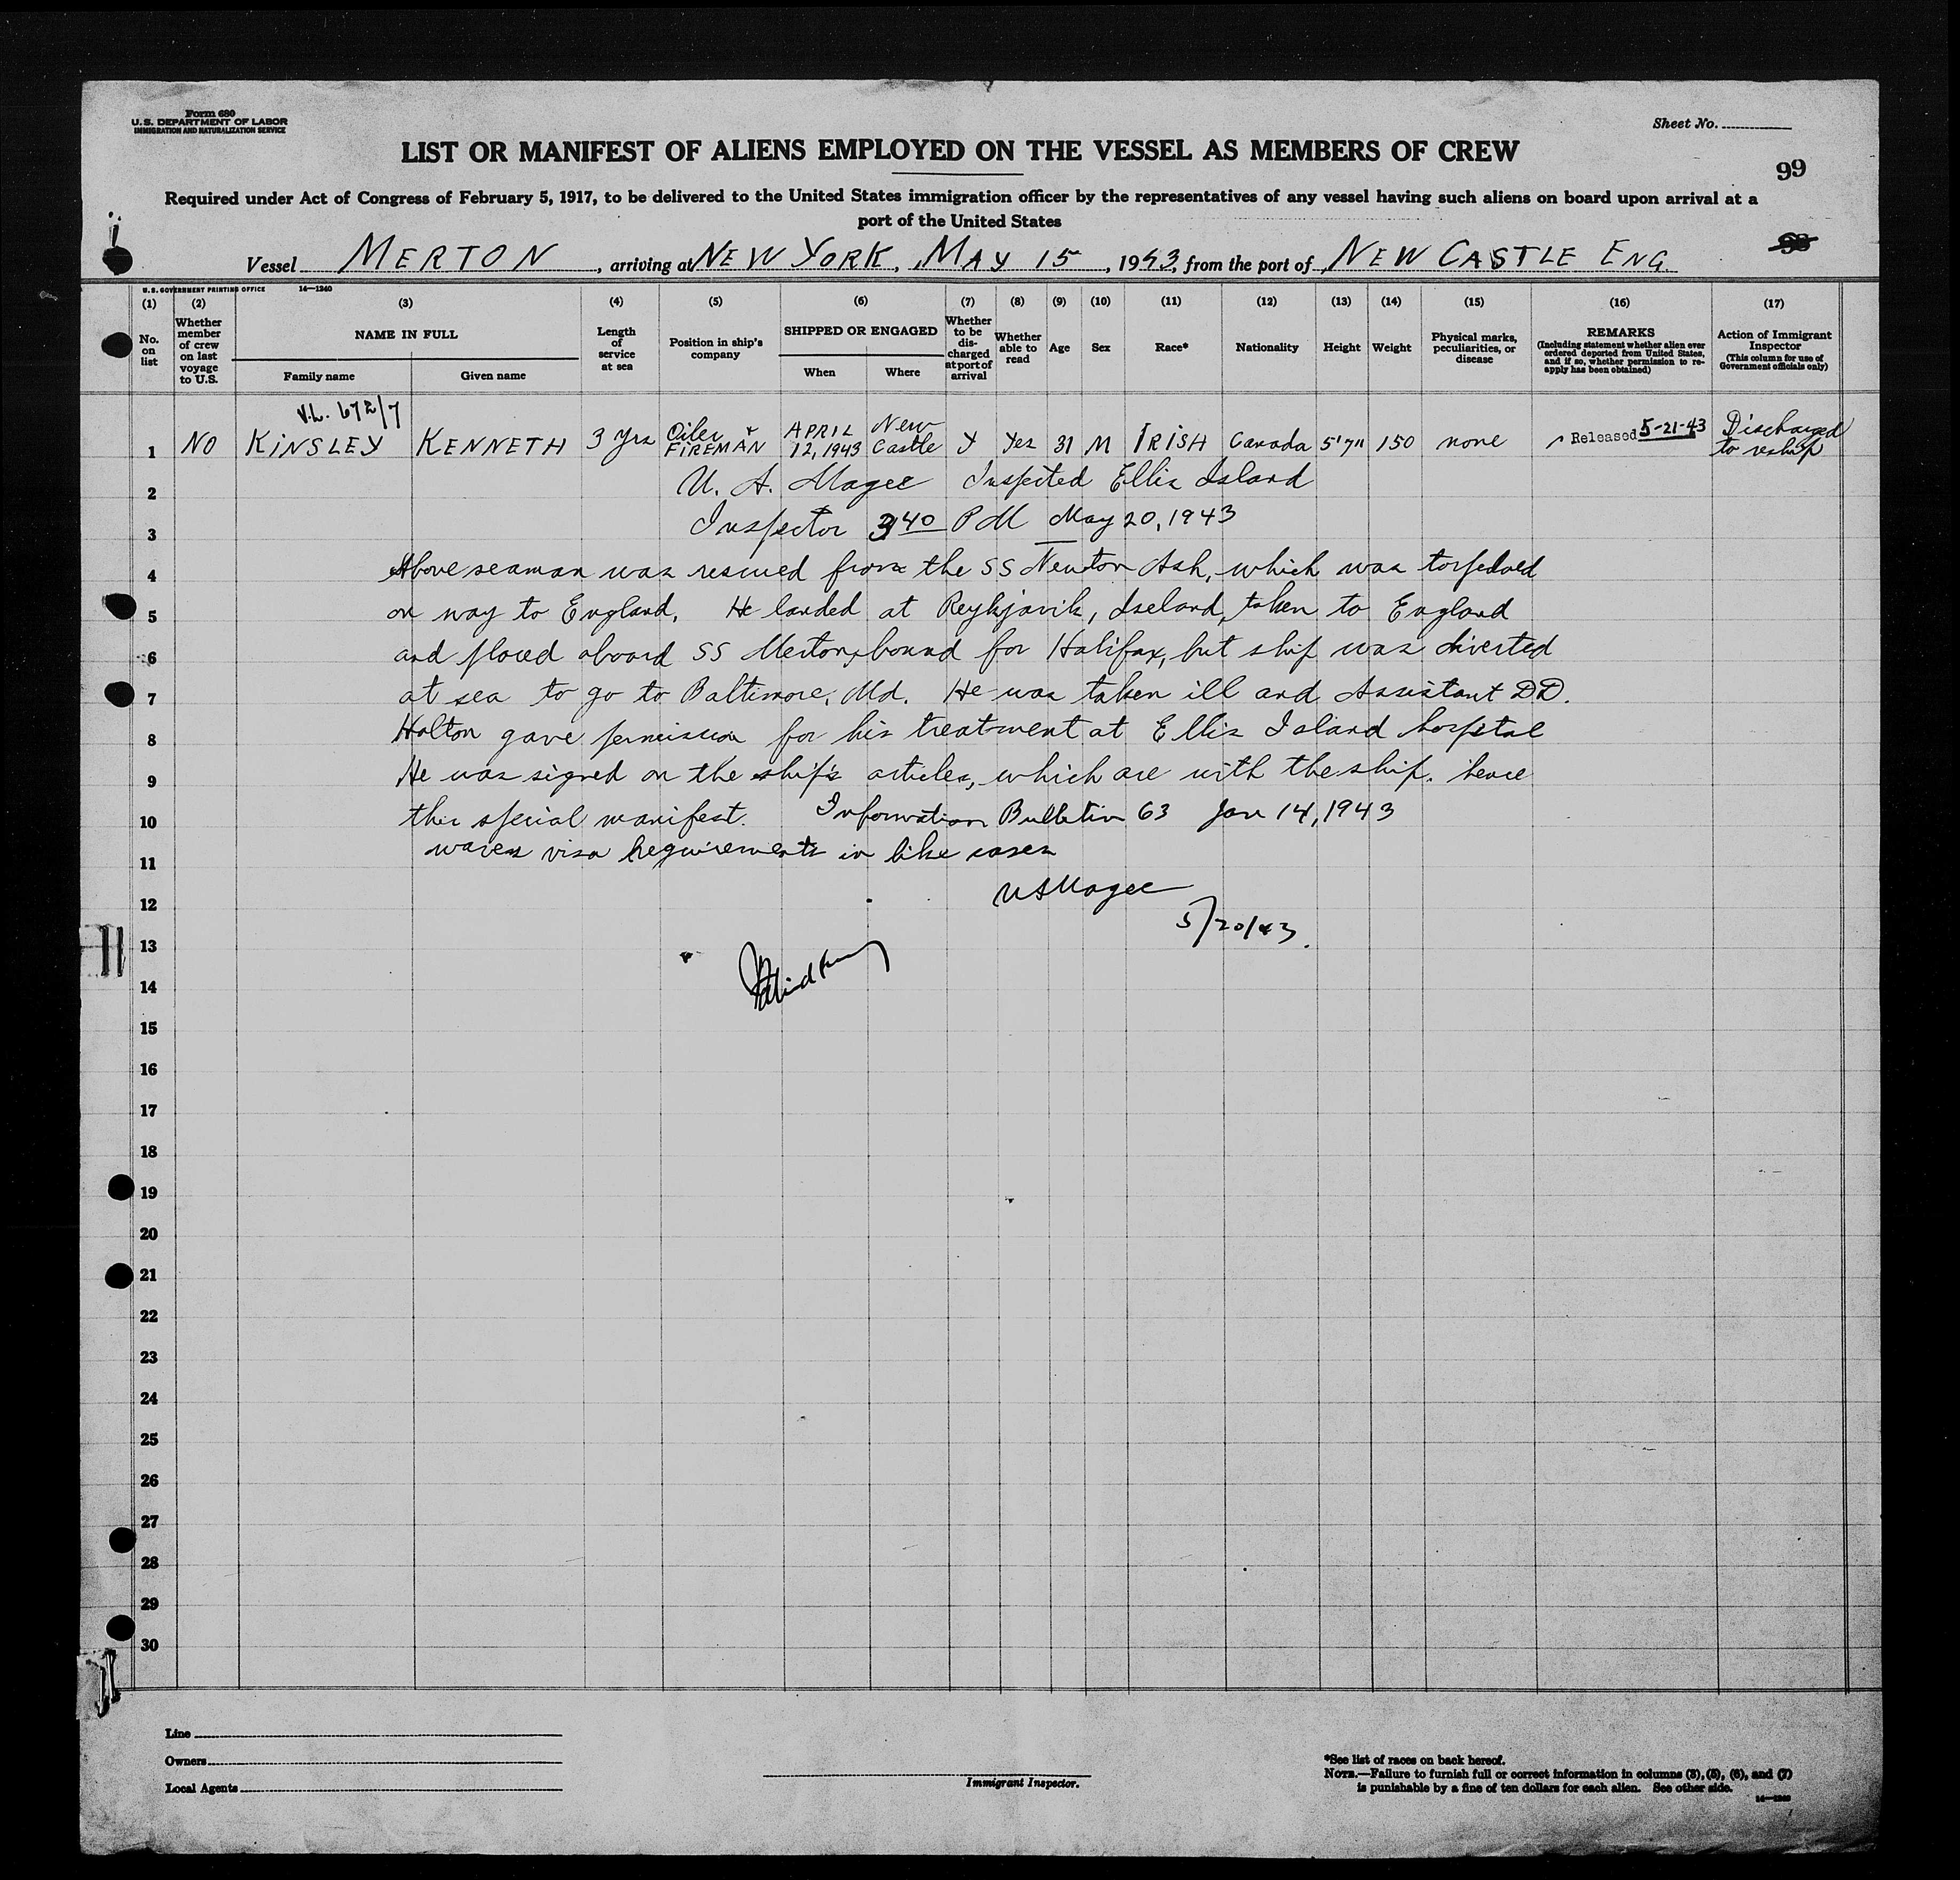 Form 680
U. S. DEPARTMENT OF LABOR
IMMIGRATION AND NATURALIZATION SERVICE
Sheet No.
LIST OR MANIFEST OF ALIENS EMPLOYED ON THE VESSEL AS MEMBERS OF CREW
99
Required under Act of Congress of February 5, 1917, to be delivered to the United States immigration officer by the representatives of any vessel having such aliens on board upon arrival at a
port of the United States
Vessel MERTON, arriving at NEW YORK, MAY 15, 1943, from the port of NEW CASTLE ENG.
U. S. GOVERNMENT PRINTING OFFICE 14—1240
(1) (2) (3) (4) (5) (6) (7) (8) (9) (10) (11) (12) (13) (14) (15) (16) (17)
No. on list
Whether member of crew on last voyage to U.S.
NAME IN FULL
Family name
Given name
Length of service at sea
Position in ship's company
SHIPPED OR ENGAGED
When
Where
Whether to be discharged at port of arrival
Whether able to read
Age
Sex
Race*
Nationality
Height
Weight
Physical marks, peculiarities, or disease
REMARKS
(Including statement whether alien ever ordered deported from United States, and if so, whether permission to re-apply has been obtained)
Action of Immigrant Inspector
(This column for use of Government officials only)
V.L. 672/7
1 NO KINSLEY KENNETH 3 yrs Oiler + FIREMAN APRIL 12, 1943 New Castle Y Yes 31 M IRISH Canada 5'7" 150 none Released 5-21-43 Discharged to reship
2 U. A. Magee Inspected Ellis Island
3 Inspector 3 40 PM May 20, 1943
4 Above seaman was rescued from the SS Newton Ash, which was torpedoed
5 on way to England. He landed at Reykjavik, Iseland, taken to England
6 and placed aboard SS Merton, bound for Halifax, but ship was diverted
7 at sea to go to Baltimore, Md. He was taken ill and Assistant D.D.
8 Holton gave permission for his treatment at Ellis Island hospital
9 He was signed on the ship's articles, which are with the ship. hence
10 this special manifest. Information Bulletin 63 Jan 14, 1943
11 waves visa requirements in like cases
12 U A Magee
13 5/20/43.
14
15
16
17
18
19
20
21
22
23
24
25
26
27
28
29
30
Line
Owners
Local Agents
Immigrant Inspector.
*See list of races on back hereof.
NOTE.—Failure to furnish full or correct information in columns (3), (5), (6), and (7)
is punishable by a fine of ten dollars for each alien. See other side.
14—1240